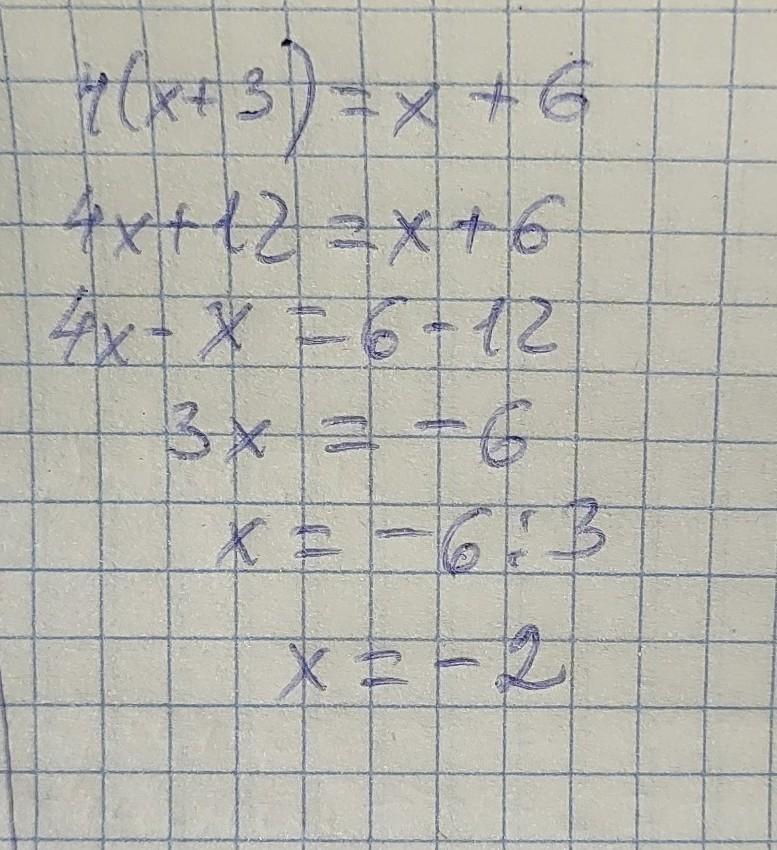 4(x+3)=x+6
4x+12=x+6
4x-x=6-12
3x=-6
x=-6:3
x=-2